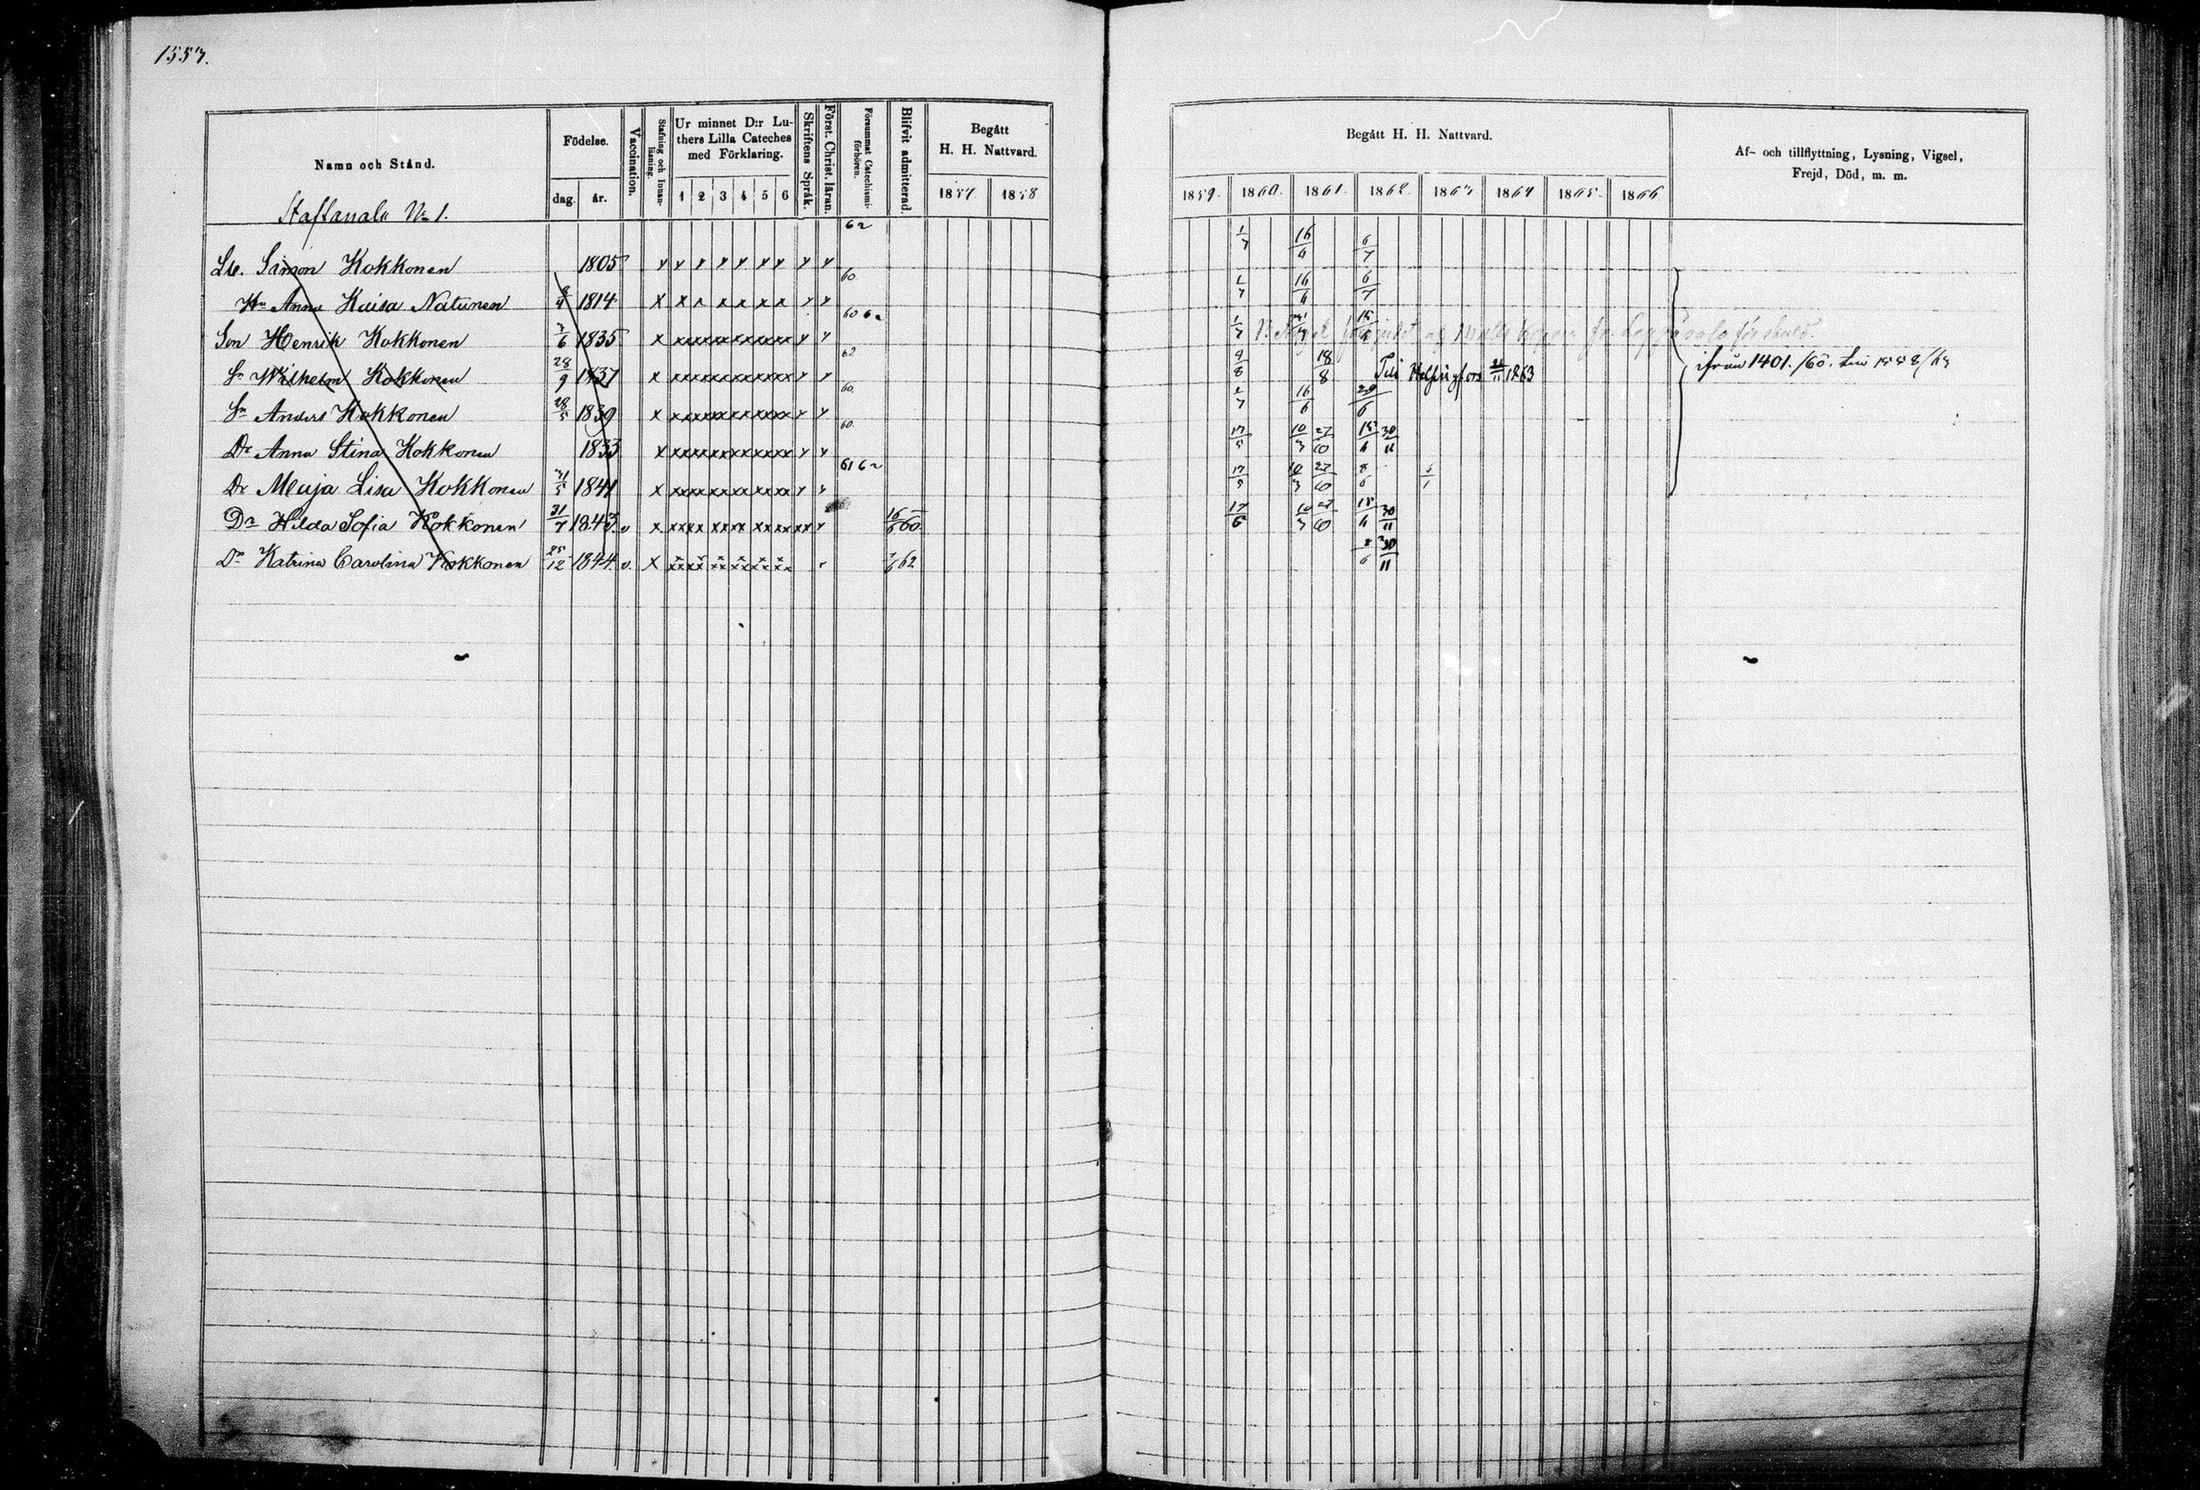 1557.
Namn och Stånd.
Födelse.
dag. år.
Vaccination.
Stafning och Innanläsning.
Ur minnet D:r Luthers Lilla Cateches med Förklaring.
1 2 3 4 5 6
Skriftens Språk.
Först. Christ. läran.
Försummat Catechismiförhören.
Blifvit admitterad.
Begått H. H. Nattvard.
1857 1858
Begått H. H. Nattvard.
1859. 1860. 1861. 1862. 1863 1864 1865. 1866
Af- och tillflyttning, Lysning, Vigsel, Frejd, Död, m. m.
No 1.
Simon Kokkonen 1805 62 1/7 16/6 6/7
Anna Kaisa Natunen 1814 60 1/7 16/6 6/7
Son Henrik Kokkonen 3/6 1835 60 62 1/7 15/6
Sn Wilhelm Kokkonen 28/9 1837 62 9/8 18/8 Till Helsingfors 1863
ifrån 1401./60.
Sn Anders Kokkonen 28/5 1839 60. 2/7 16/6 29/6
Dr Anna Stina Kokkonen 1833 60. 17/5 10/3 27/10 15/6 30/11
Dr Maja Lisa Kokkonen 31/5 1841 61 62 17/5 10/3 27/10 8/6
Dr Hilda Sofia Kokkonen 31/7 1843. v 16/6 60. 17/6 10/3 27/10 15/6 30/11
Dr Katrina Carolina Kokkonen 25/12 1844. v. 62 8/6 30/11